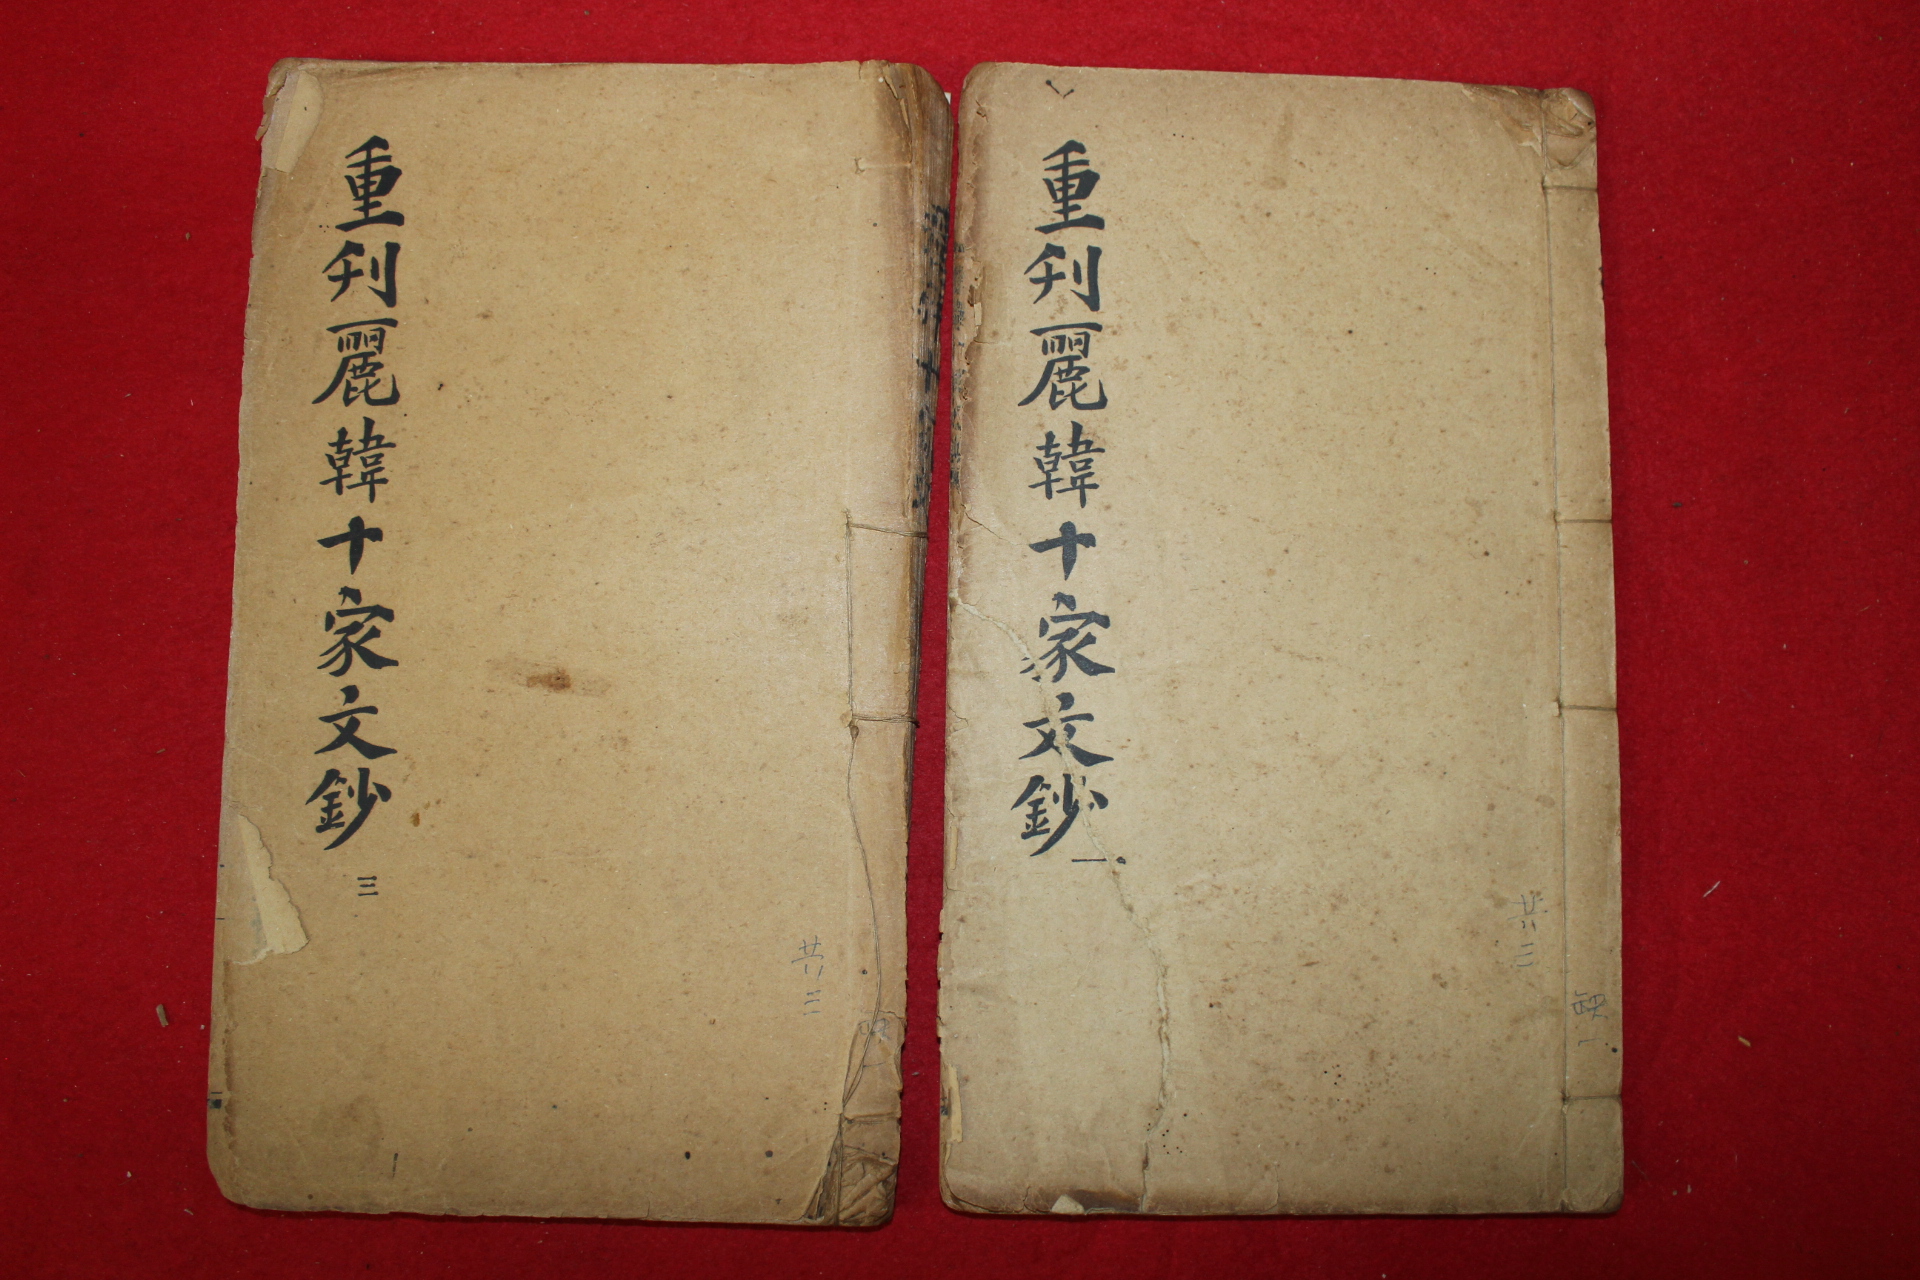 重刋麗韓十家文鈔 一
共三
缺一
重刋麗韓十家文鈔 三
共三